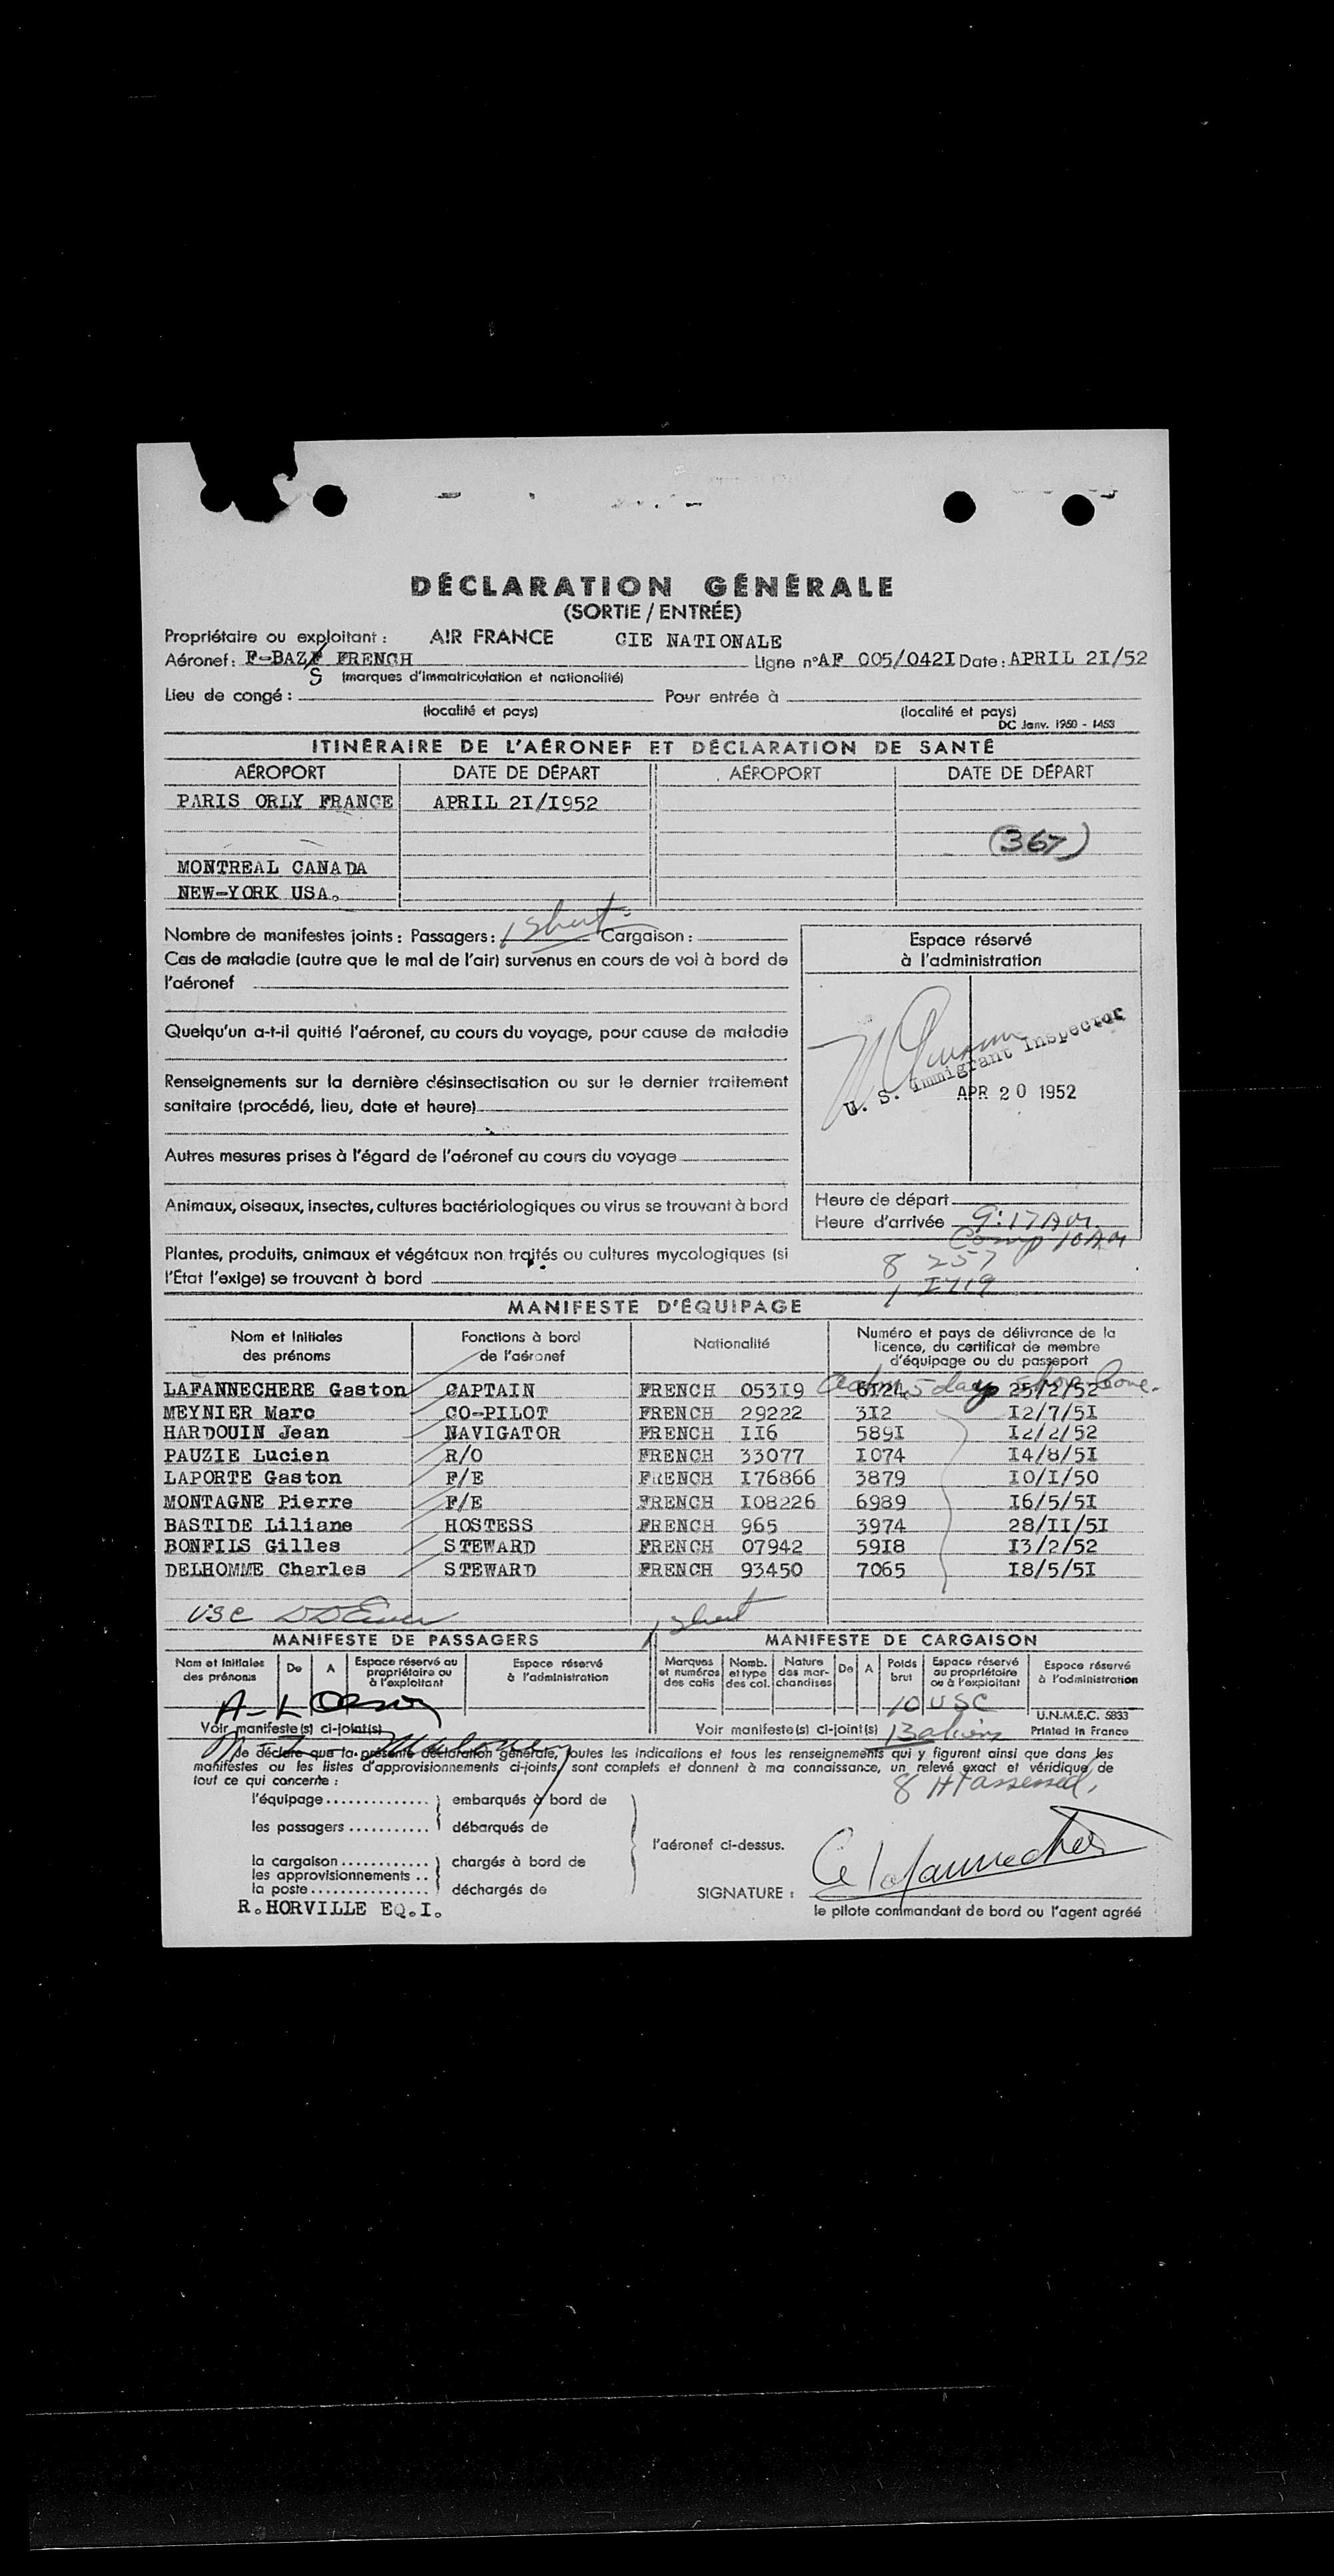 DÉCLARATION GÉNÉRALE
(SORTIE / ENTRÉE)
Propriétaire ou exploitant : AIR FRANCE CIE NATIONALE
Aéronef : F-BAZF FRENCH Ligne n° AF 005/042I Date : APRIL 2I/52
S (marques d'immatriculation et nationalité)
Lieu de congé : Pour entrée à
(localité et pays) (localité et pays)
DC Janv. 1950 - 1453
ITINÉRAIRE DE L'AÉRONEF ET DÉCLARATION DE SANTÉ
AÉROPORT DATE DE DÉPART AÉROPORT DATE DE DÉPART
PARIS ORLY FRANCE APRIL 2I/I952
(367)
MONTREAL CANADA
NEW-YORK USA.
Nombre de manifestes joints : Passagers : 1 Sheet Cargaison :
Cas de maladie (autre que le mal de l'air) survenus en cours de vol à bord de
l'aéronef
Quelqu'un a-t-il quitté l'aéronef, au cours du voyage, pour cause de maladie
Renseignements sur la dernière désinsectisation ou sur le dernier traitement
sanitaire (procédé, lieu, date et heure)
Autres mesures prises à l'égard de l'aéronef au cours du voyage
Animaux, oiseaux, insectes, cultures bactériologiques ou virus se trouvant à bord
Plantes, produits, animaux et végétaux non traités ou cultures mycologiques (si
l'État l'exige) se trouvant à bord
Espace réservé
à l'administration
U. S. Immigrant Inspector
APR 20 1952
Heure de départ
Heure d'arrivée 9:17 AM
Comp 10 AM
8 257
1 I719
MANIFESTE D'ÉQUIPAGE
Nom et Initiales des prénoms Fonctions à bord de l'aéronef Nationalité Numéro et pays de délivrance de la licence, du certificat de membre d'équipage ou du passeport
LAFANNECHERE Gaston CAPTAIN FRENCH 053I9 6I24 25/2/52
MEYNIER Marc CO-PILOT FRENCH 29222 3I2 I2/7/5I
HARDOUIN Jean NAVIGATOR FRENCH II6 589I I2/2/52
PAUZIE Lucien R/O FRENCH 33077 I074 I4/8/5I
LAPORTE Gaston F/E FRENCH I76866 3879 I0/I/50
MONTAGNE Pierre F/E FRENCH I08226 6989 I6/5/5I
BASTIDE Liliane HOSTESS FRENCH 965 3974 28/II/5I
BONFILS Gilles STEWARD FRENCH 07942 59I8 I3/2/52
DELHOMME Charles STEWARD FRENCH 93450 7065 I8/5/5I
USC 1 Sheet
MANIFESTE DE PASSAGERS MANIFESTE DE CARGAISON
Nom et Initiales des prénoms De A Espace réservé au propriétaire ou à l'exploitant Espace réservé à l'administration Marques et numéros des colis Nomb. et type des col. Nature des mar-chandises De A Poids brut Espace réservé au propriétaire ou à l'exploitant Espace réservé à l'administration
10 USC
U.N.M.E.C. 5833
Voir manifeste(s) ci-joint(s) Voir manifeste(s) ci-joint(s) 13 aliens Printed in France
Je déclare que la présente déclaration générale, toutes les indications et tous les renseignements qui y figurent ainsi que dans les
manifestes ou les listes d'approvisionnements ci-joints, sont complets et donnent à ma connaissance, un relevé exact et véridique de
tout ce qui concerne :
8 HT assessed,
l'équipage .............. embarqués à bord de
les passagers ........... débarqués de
l'aéronef ci-dessus.
la cargaison ............ chargés à bord de
les approvisionnements ..
la poste ................ déchargés de
SIGNATURE : G Lafannechere
R.HORVILLE EQ.I. le pilote commandant de bord ou l'agent agréé